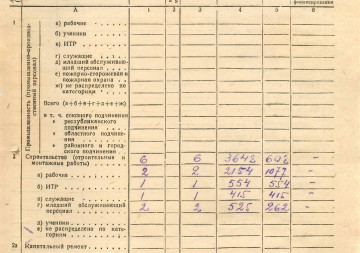 финансирования
А 1 2 3 4 5 6
1 Промышленность (промышленно-производственный персонал)
а) рабочие
б) ученики
в) ИТР
г) служащие
д) младший обслуживающий персонал
е) пожарно-сторожевая и пожарная охрана
ж) не распределено по категориям
Всего (а+б+в+г+д+е+ж)
в т. ч. союзного подчинения
республиканского подчинения
областного подчинения
районного и городского подчинения
2 Строительство (строительные и монтажные работы) 6 6 3648 –
а) рабочие 2 2 2154 1077 –
б) ИТР 1 1 554 554 –
в) служащие 1 1 415 415 –
г) младший обслуживающий персонал 2 2 525 262 –
д) ученики
е) не распределено по категориям
2а Капитальный ремонт